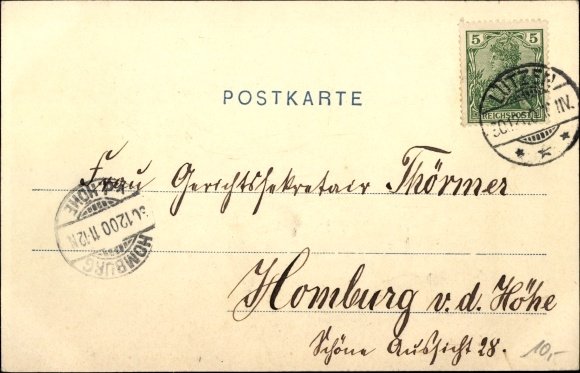 5 5
REICHSPOST
LÜTZEN
POSTKARTE
Frau Gerichtssekretair Thörmer
v.d. HÖHE
30.12.00 11-12 N.
HOMBURG
Homburg v. d. Höhe
Schöne Aussicht 28.
10,-